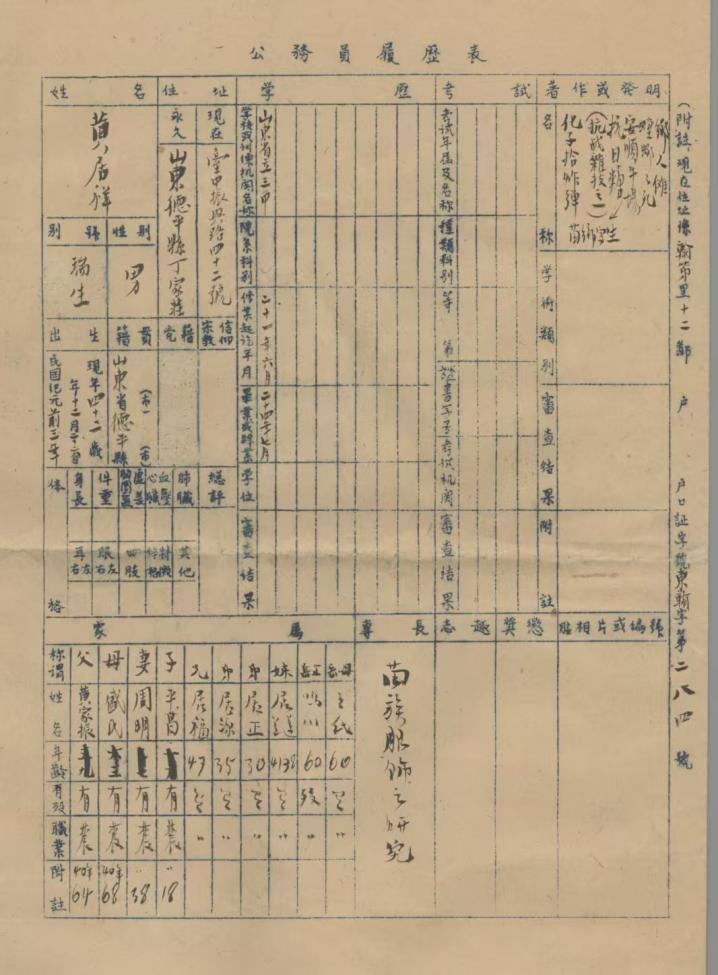 公務員履歷表
姓名
黃居祥
別號
瑞生
性別
男
出生
民國紀元前三年
年十二月十二日
現年四十二歲
籍貫
山東省德平縣
（市）
（市）
黨籍
宗教信仰
住址
永久
山東德平縣丁家莊
現在
臺中振興路四十二號
體格
身長
體重
胸圍
血壓
心臟
肺臟
總評
耳右左
眼右左
四肢
其他
學歷
學校或訓練機關名稱
山東省立三中
院系科別
修業起訖年月
二十一年六月
二十四年七月
畢業或肄業
學位
審查結果
考試
考試年屆及名稱
種類科別
等第
證書字號
考試機關
審查結果
著作或發明
名稱
鄉人儺
安順牛場
抗日
（抗戰雜技之一）
化子拾炸彈
學術類別
審查結果
附註
（附註現在住址係翰第里十二鄰 戶 戶口証字號東翰字第二八四號
家屬
稱謂 父 母 妻 子 兄 弟 弟 妹 岳父 岳母
姓名 黃家振 盛氏 周明 平昌 居福 居源 居正 居蓮 鳴川 王氏
年齡 47 35 30 60 60
有歿 有 有 有 有 歿
職業 農 農 農 農 〃 〃 〃 〃 〃 〃
附註 40年64 40年68 〃38 〃18
專長
苗族服飾之研究
志趣
獎懲
貼相片或編號